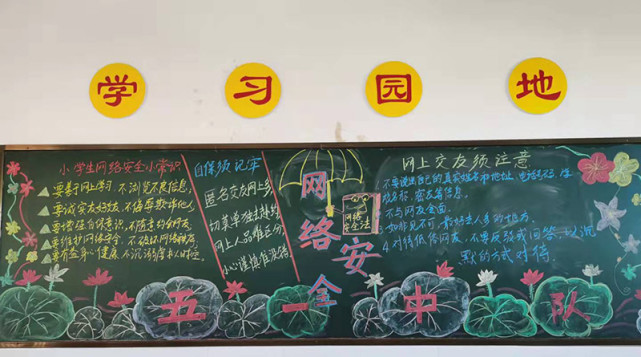 学习园地
小学生网络安全小常识
要善于网上学习,不浏览不良信息。
要诚实友好交友,不侮辱欺诈他人。
要增强自护意识,不随意约会网友。
要维护网络安全,不破坏网络秩序。
要有益身心健康,不沉溺虚拟时空。
自保须记牢
匿名交友网上多
切莫单独去赴约
网上人品难区分
小心谨慎没错
网络安全
网络
安全法
网上交友须注意
不要透露自己的真实姓名和地址、电话号码、学
校名称、密友等信息。
不与网友会面。
如非见不可,最好去人多的地方。
对待低俗网友,不要反驳或回答,以沉
默的方式对待
五一中队